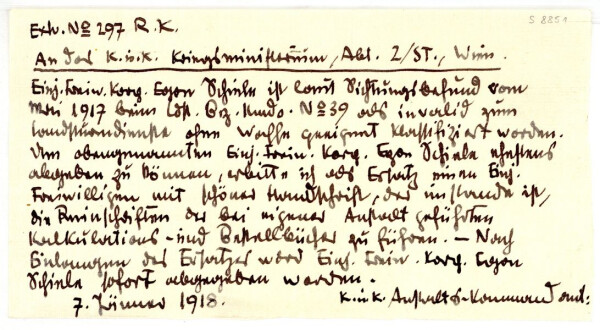 S 8851
Exh. No 297 R. K.
An das K.u.K. Kriegsministerium, Abt. 2/ST., Wien.
Einj. Freiw. Korp. Egon Schiele ist laut Sichtungsbefund vom
Mai 1917 beim Lst. Bz. Kmdo. No 39 als invalid zum
Landsturmdienste ohne Waffe geeignet klassifiziert worden.
Um obengenannten Einj. Freiw. Korp. Egon Schiele ehestens
abgeben zu können, erbitte ich als Ersatz einen Einj.
Freiwilligen mit schöner Handschrift, der imstande ist,
die Reinschriften der bei eigener Anstalt geführten
Kalkulations- und Bestellbücher zu führen. — Nach
Einlangen des Ersatzes wird Einj. Freiw. Korp. Egon
Schiele sofort abgegeben werden.
7. Jänner 1918. K.u.K. Anstalts-Kommandant: